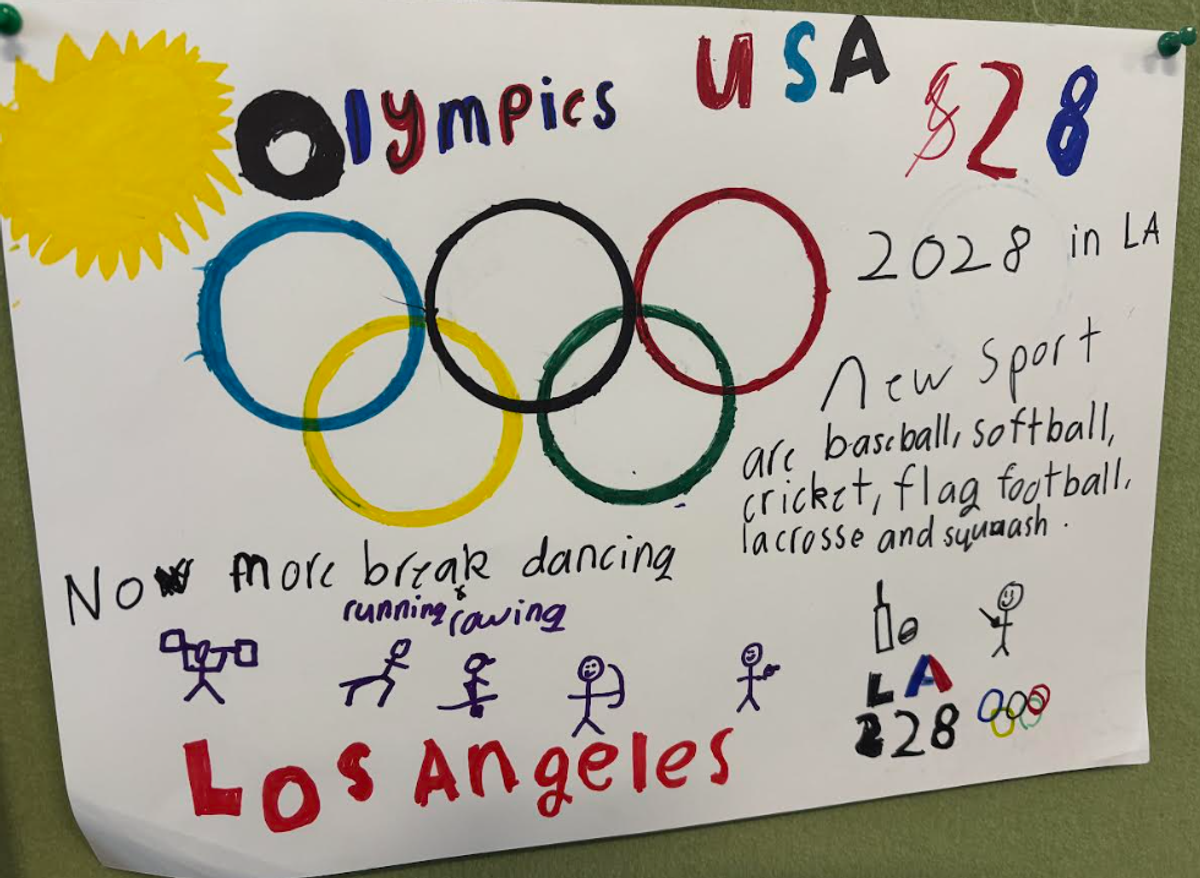 Olympics USA $28
2028 in LA
New Sport
are baseball, softball,
cricket, flag football,
lacrosse and squash.
No more break dancing
running rowing
LA
28
Los Angeles